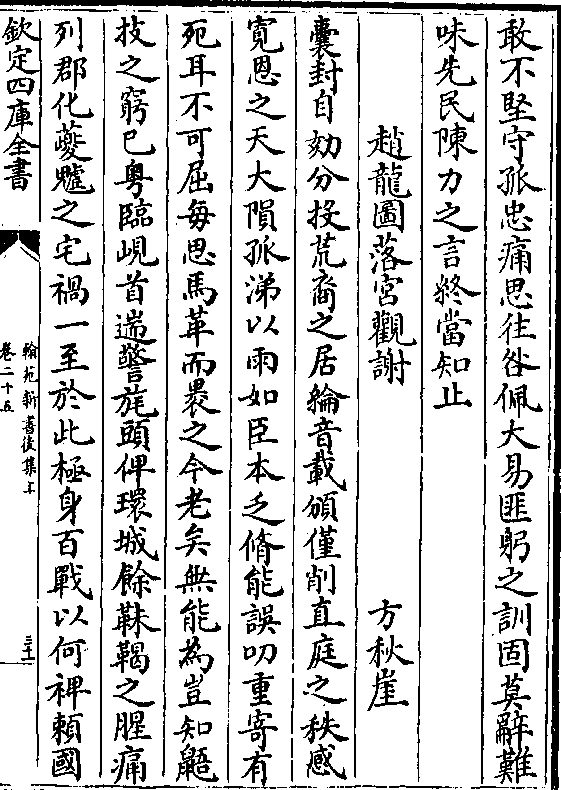 敢不堅守孤忠痛思往咎佩大易匪躬之訓固莫辭難
味先民陳力之言終當知止
趙龍圖落宮觀謝 方秋崖
囊封自劾分投荒裔之居綸音載頒僅削直庭之秩感
寛恩之天大隕孤涕以雨如臣本乏脩能誤叨重寄有
死耳不可屈每思馬革而褁之今老矣無能為豈知鼯
技之窮巳粤臨峴首遄警旄頭俾環城餘靺鞨之腥痛
列郡化夔魖之宅禍一至於此極身百戰以何禆頼國
欽定四庫全書
翰苑新書後集上
卷二十五
三十一